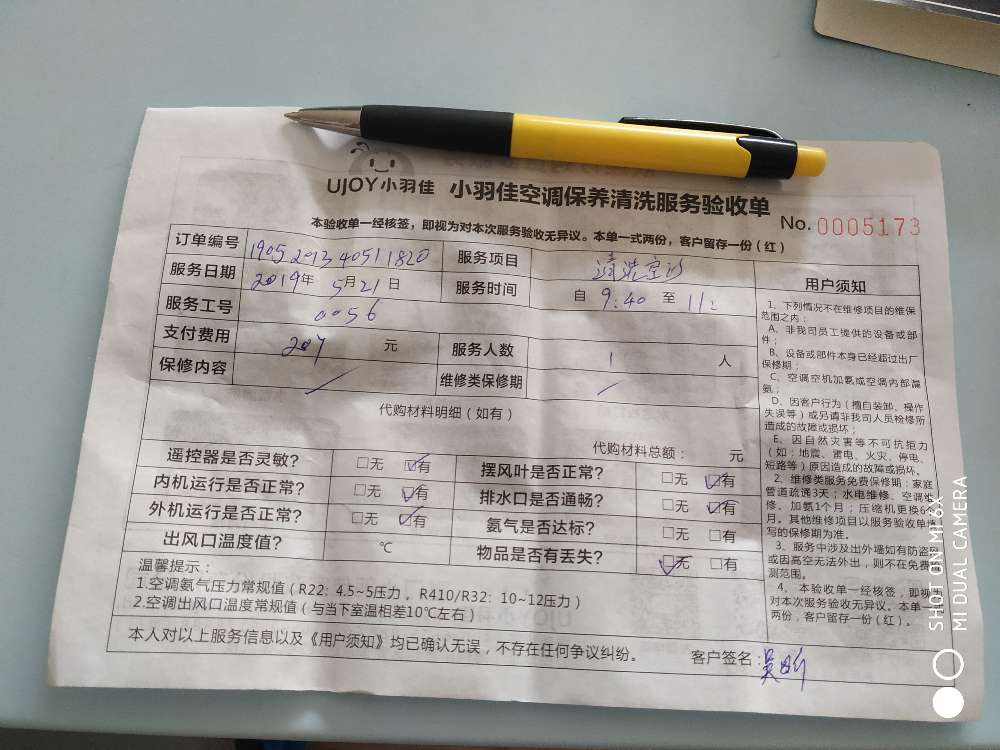 UJOY小羽佳 小羽佳空调保养清洗服务验收单
No. 0005173
本验收单一经核签，即视为对本次服务验收无异议。本单一式两份，客户留存一份（红）
订单编号 1905201340511820 服务项目 清洗空调
服务日期 2019年 5月21日 服务时间 自 9:40 至 11:
服务工号 0056
支付费用 207 元 服务人数 1 人
保修内容 / 维修类保修期 /
代购材料明细（如有）
代购材料总额： 元
遥控器是否灵敏？ □无 ☑有 摆风叶是否正常？ □无 ☑有
内机运行是否正常？ □无 ☑有 排水口是否通畅？ □无 ☑有
外机运行是否正常？ □无 ☑有 氨气是否达标？ □无 □有
出风口温度值？ ℃ 物品是否有丢失？ ☑无 □有
温馨提示：
1.空调氨气压力常规值（R22：4.5~5压力，R410/R32：10~12压力）
2.空调出风口温度常规值（与当下室温相差10℃左右）
本人对以上服务信息以及《用户须知》均已确认无误，不存在任何争议纠纷。 客户签名：
用户须知
1、下列情况不在维修项目的维保
范围之内：
A、非我司员工提供的设备或部
件；
B、设备或部件本身已经超过出厂
保修期；
C、空调空机加氨或空调内部漏
氨；
D、因客户行为（擅自装卸、操作
失误等）或另请非我司人员检修所
造成的故障或损坏；
E、因自然灾害等不可抗拒力
（如：地震、雷电、火灾、停电、
短路等）原因造成的故障或损坏。
2、维修类服务免费保修期：家庭
管道疏通3天；水电维修、空调维
修、加氨1个月；压缩机更换6个
月。其他维修项目以服务验收单填
写的保修期为准。
3、服务中涉及出外墙如有防盗网
或因高空无法外出，则不在免费检
测范围。
4、本验收单一经核签，即视为
对本次服务验收无异议。本单一式
两份，客户留存一份（红）。
SHOT ON MI 6X
MI DUAL CAMERA